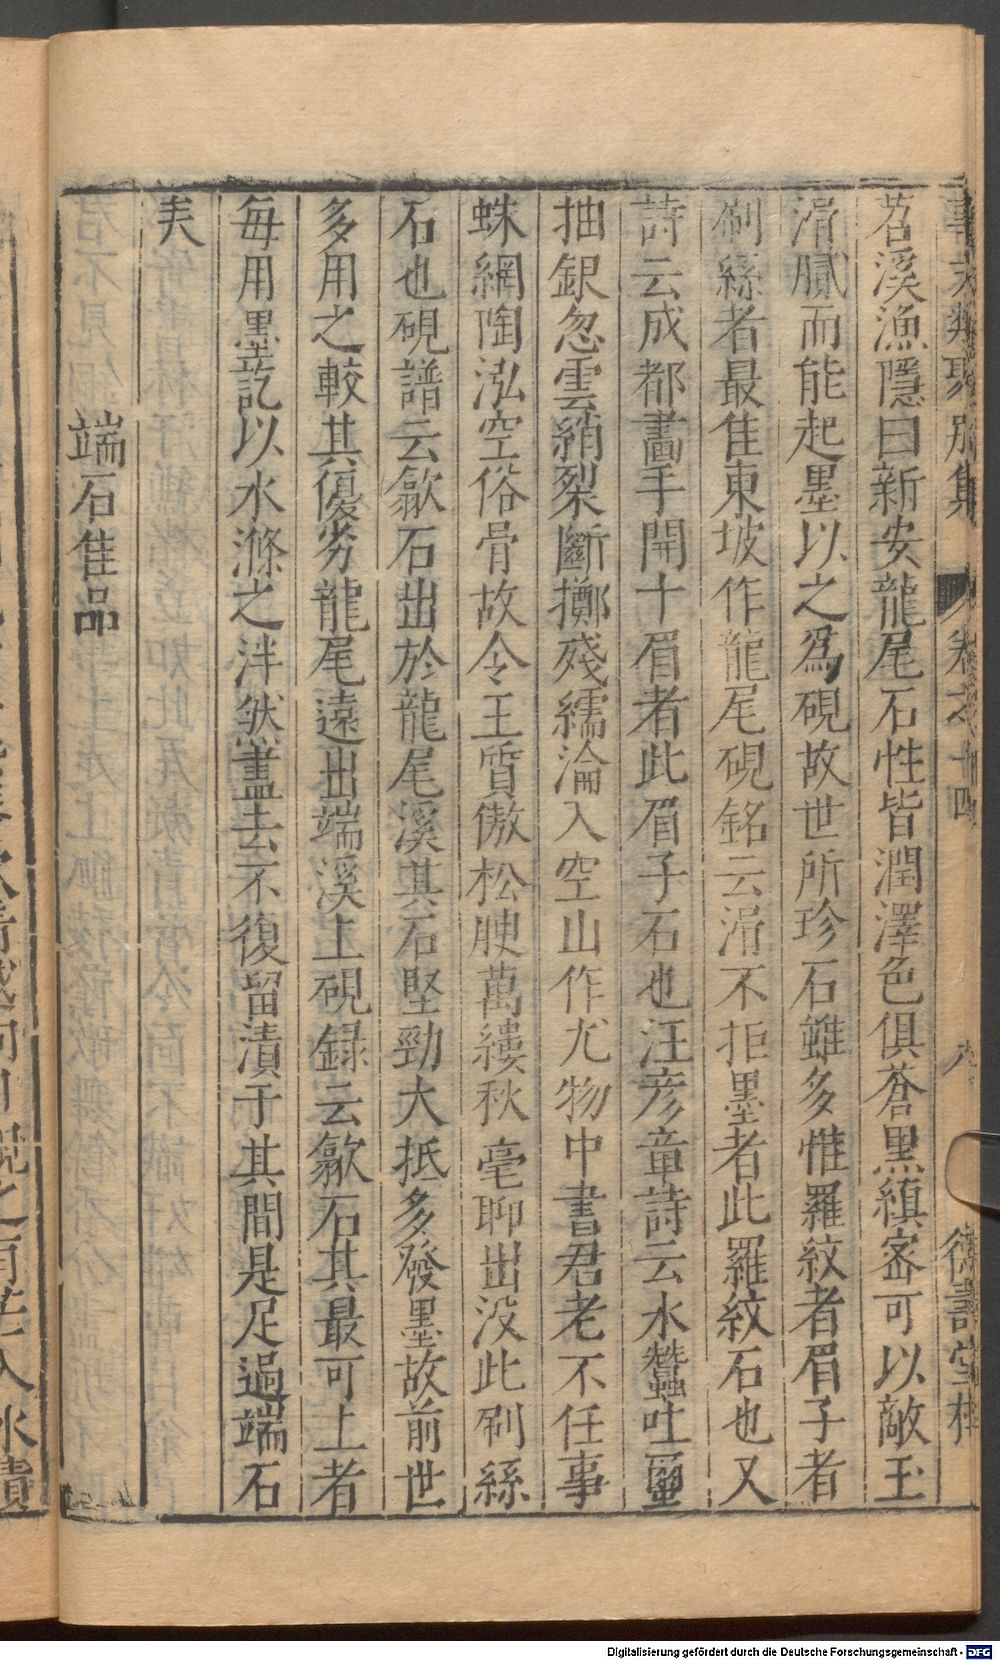 事文類聚別集 卷之十四 八 德壽堂梓
苕溪漁隱曰新安龍尾石性皆潤澤色俱蒼黑縝宻可以敵玉
滑膩而能起墨以之爲硯故世所珍石雖多惟羅紋者眉子者
刷絲者最隹東坡作龍尾硯銘云滑不拒墨者此羅紋石也又
詩云成都畵手開十眉者此眉子石也汪彦章詩云水蠶吐蠒
抽銀忽雲綃裂斷擲殘繻淪入空山作尤物中書君老不任事
蛛網陶泓空俗骨故令王質傲松腴萬縷秋毫聊出没此刷絲
石也硯譜云歙石出於龍尾溪其石堅勁大抵多發墨故前世
多用之較其優劣龍尾遠出端溪上硯録云歙石其最可上者
毎用墨訖以水滌之泮然盡去不復留漬于其間是足過端石
矣
端石隹品
Digitalisierung gefördert durch die Deutsche Forschungsgemeinschaft - DFG